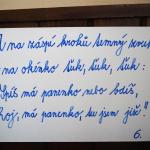 A na záspí kroků temný zvuk
na okénko ťuk, ťuk, ťuk:
„Spíš má panenko nebo bdíš,
Hoj, má panenko, tu jsem již!“
6.